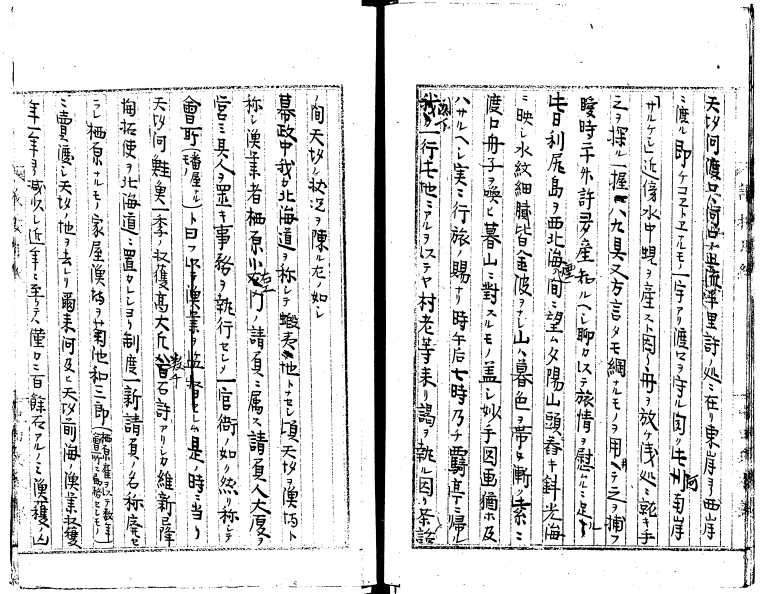 天塩河渡口ハ河口ヨリ上流半里許ノ処ニ在リ東岸ヨリ西岸
ニ渡ル即ケコヱトヱナルモノ一宇アリ渡口ヲ守ル聞ク此河南岸
サルケシ近傍水中蜆ヲ産スト因テ舟ヲ放ケ浅処ニ就キ手
之ヲ探ル一握八九具又方言タモ網ナルモノヲ用ヘテ之ヲ捕フ
瞬時ニ升許ヲ産知ルヘシ聊カ以テ旅情ヲ慰ムルニ足ル
此日利尻島ヲ西北海煙間ニ望ム夕陽山頭ニ舂キ斜光海
ニ映シ水紋細膩皆金波ヲナシ山ハ暮色ヲ帯ヒ漸ク来ニ
渡口舟子ヲ喚ヒ暮山ニ對スルモノ蓋シ妙手ノ図画猶ホ及
ハサルヘシ実ニ行旅ノ賜ナリ時午后七時乃チ覊亭ニ帰ル
我一行此地ニアルヲ以テヤ村老等来リ謁ヲ執ル因リ茶話
ノ間天塩ノ状況ヲ陳ル左ノ如シ
幕政中我カ北海道ヲ称シテ蝦夷地トナセシ頃天塩ヲ漁場ト
称シ漁業者栖原小右衛門ノ請負ニ属ス請負人大厦ヲ
営ミ其人ヲ置キ事務ヲ執行セシメ一官衙ノ如ク然リ称シテ
會所(番屋ナルモノ)ト曰フ以テ漁業ヲ監督セシム是ノ時ニ当リ
天塩河鮭漁一季ノ収獲高大凡数千石許アリシカ維新ノ降
開拓使ヲ北海道ニ置カレシヨリ制度一新請負ノ名称廃セ
ラレ栖原ナルモノ家屋漁場ヲ菊池和三郎
ニ賣渡シ天塩ノ地ヲ去レリ爾来河及ヒ天塩前海ノ漁業収獲
年一年ヨリ減収シ近年ニ至リテハ僅カニ百餘石アルノミ漁獲ノ